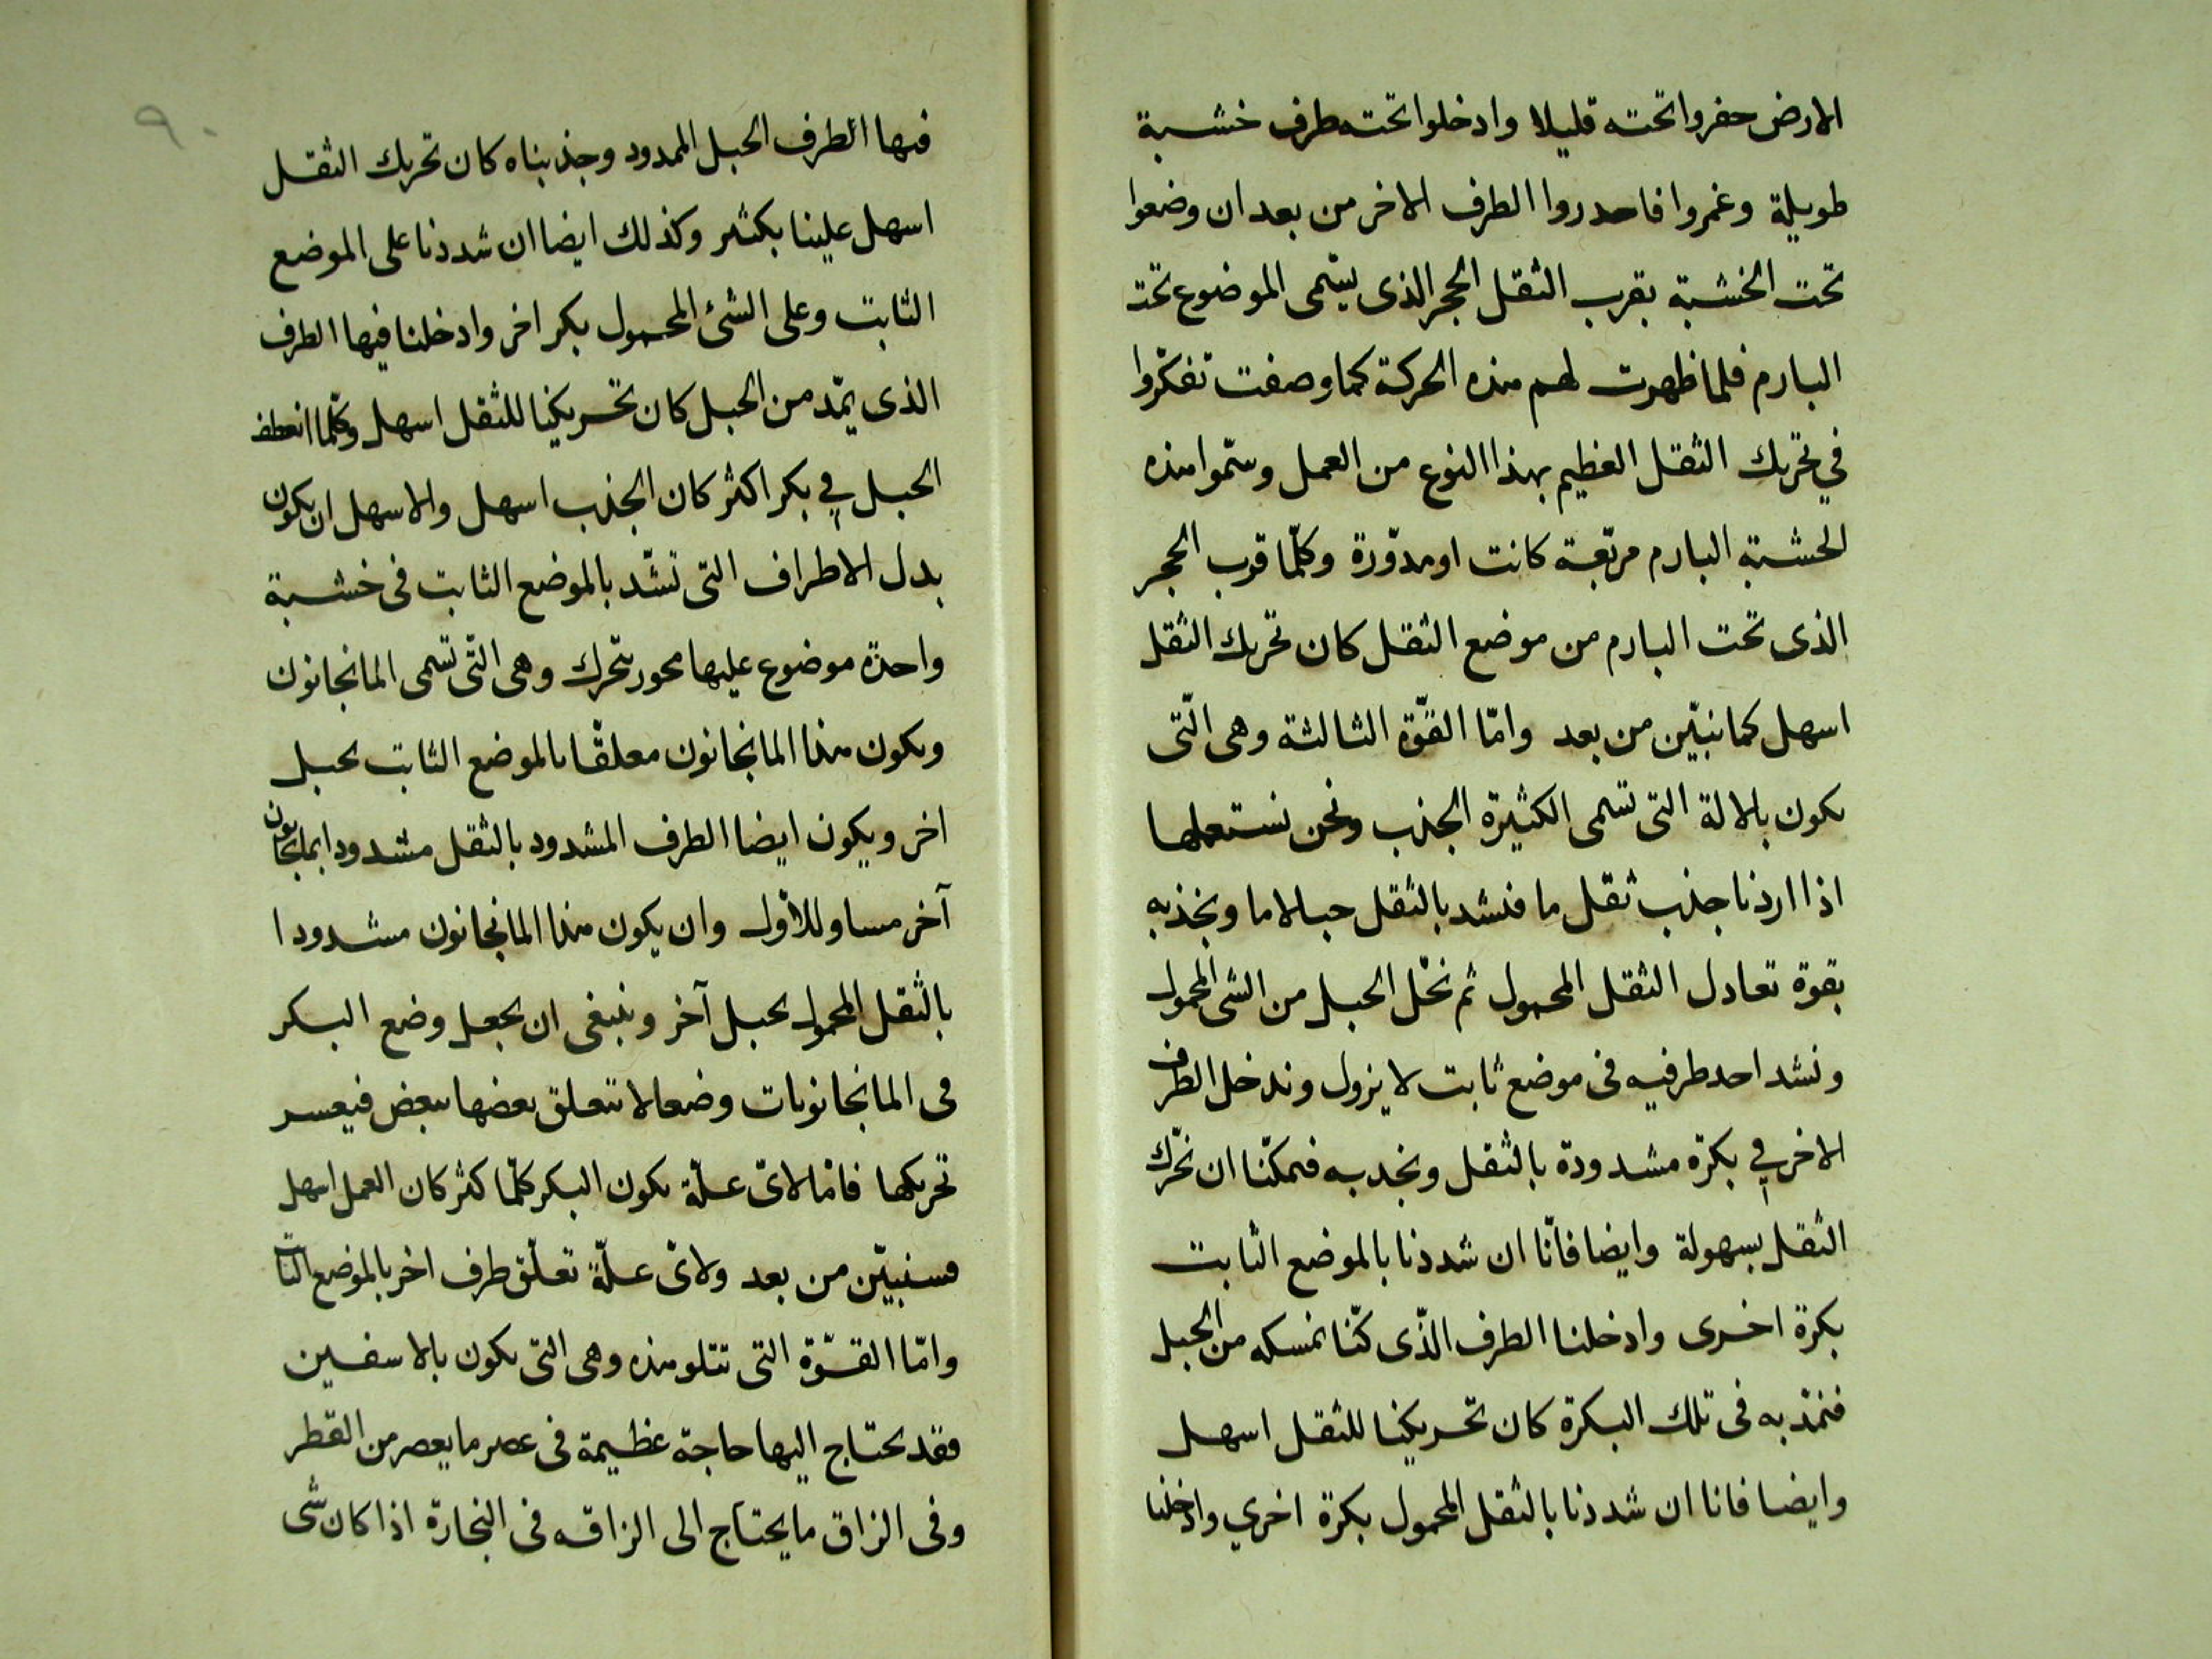 الارض حفروا تحته قليلا وادخلوا تحته طرف خشبة
طويلة وغمروا فاحدروا الطرف الاخر من بعد ان وضعوا
تحت الخشبة بقرب الثقل الحجر الذى يسّمى الموضوع تحت
البارم فلما ظهرت لهم هذه الحركة كما وصفت تفكّروا
في تحريك الثقل العظيم بهذا النوع من العمل وسمّوا هذه
الحشبة البارم مربّعة كانت او مدوّرة وكلّما قرب الحجر
الذى تحت البارم من موضع الثقل كان تحريك الثقل
اسهل كما نبيّن من بعد وامّا القوّة الثالثة وهى الّتى
يكون بالالة التى تسمى الكثيرة الجذب ونحن نستعملها
اذا اردنا جذب ثقل ما فنشد بالثقل حبالاما ونجذبه
بقوة تعادل الثقل المحمول ثم نحّل الحبل من الشى المحمول
ونشد احد طرفيه فى موضع ثابت لا يزول وندخل الطرف
الاخر في بكرة مشدودة بالثقل ونجدبه فيمكّنا ان نحّرك
الثقل بسهولة وايضا فانّا ان شددنا بالموضع الثابت
بكرة اخرى وادخلنا الطرف الذّى كنّا نمسكه من الحبل
فنمدّ به فى تلك البكرة كان تحريكنا للثقل اسهل
وايضا فانا ان شددنا بالثقل المحمول بكرة اخري وادخلنا
٩٠
فيها الطرف الحبل الممدود وجذبناه كان تحريك الثقل
اسهل علينا بكثير وكذلك ايضا ان شددنا على الموضع
الثابت وعلى الشئ المحمول بكر اخر وادخلنا فيها الطرف
الذى يمّد من الحبل كان تحريكنا للثقل اسهل وكلّما انعطف
الحبل في بكر اكثر كان الجذب اسهل والاسهل ان يكون
بدل الاطراف التى تشّد بالموضع الثابت فى خشبة
واحدة موضوع عليها محور يتحرك وهى التّى تسّمى المانجانون
ويكون هذا المانجانون معلقّا بالموضع الثابت بحبل
اخر ويكون ايضا الطرف المشدود بالثقل مشدودا بمانجانون
آخر مساو للاوّل وان يكون هذا المانجانون مشدودا
بالثقل المحمول بحبل آخر وينبغى ان يجعل وضع البكر
فى المانجانونات وضعا لا تتعلق بعضها ببعض فيعسر
تحريكها فامّا لاىّ علّة يكون البكر كلّما كثر كان العمل اسهل
فسنبيّن من بعد ولاىّ علّة تعلّق طرف اخر بالموضع الثابت
وامّا القوّة التى تتلو هذه وهى التى يكون بالاسفين
فقد يحتاج اليها حاجة عظيمة فى عصر ما يعصر من القطر
وفى الزاق ما يحتاج الى الزاقه فى النجارة اذا كان شى